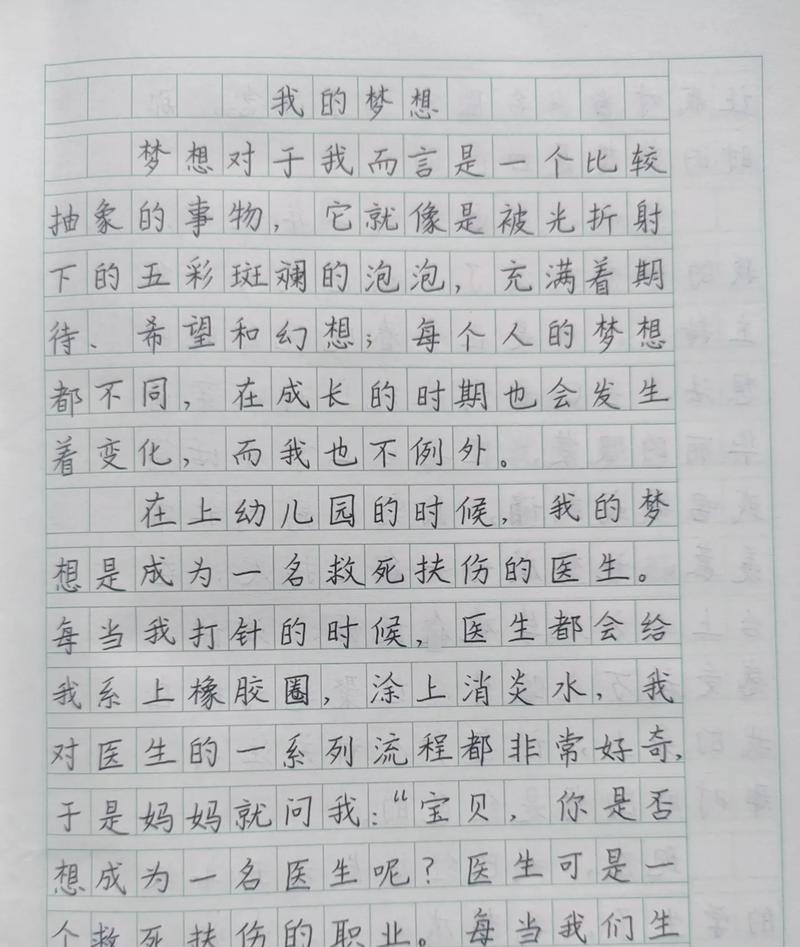 我的梦想
梦想对于我而言是一个比较
抽象的事物，它就像是被光折射
下的五彩斑斓的泡泡，充满着期
待、希望和幻想；每个人的梦想
都不同，在成长的时期也会发生
着变化，而我也不例外。
在上幼儿园的时候，我的梦
想是成为一名救死扶伤的医生。
每当我打针的时候，医生都会给
我系上橡胶圈，涂上消炎水，我
对医生的一系列流程都非常好奇，
于是妈妈就问我：“宝贝，你是否
想成为一名医生呢？医生可是一
个救死扶伤的职业。每当我们生